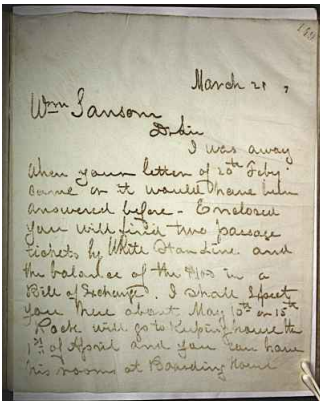 March 21
Wm Sansom
D. Sir
I was away
when your letter of 20th Feby
came or it would have been
answered before - Enclosed
you will find two passage
tickets by White Star Line and
the balance of the in a
Bill of Exchange. I shall expect
you here about May 10th or 15th
Pack will go to Keeping house the
1st of April and you can have
his rooms at Boarding House